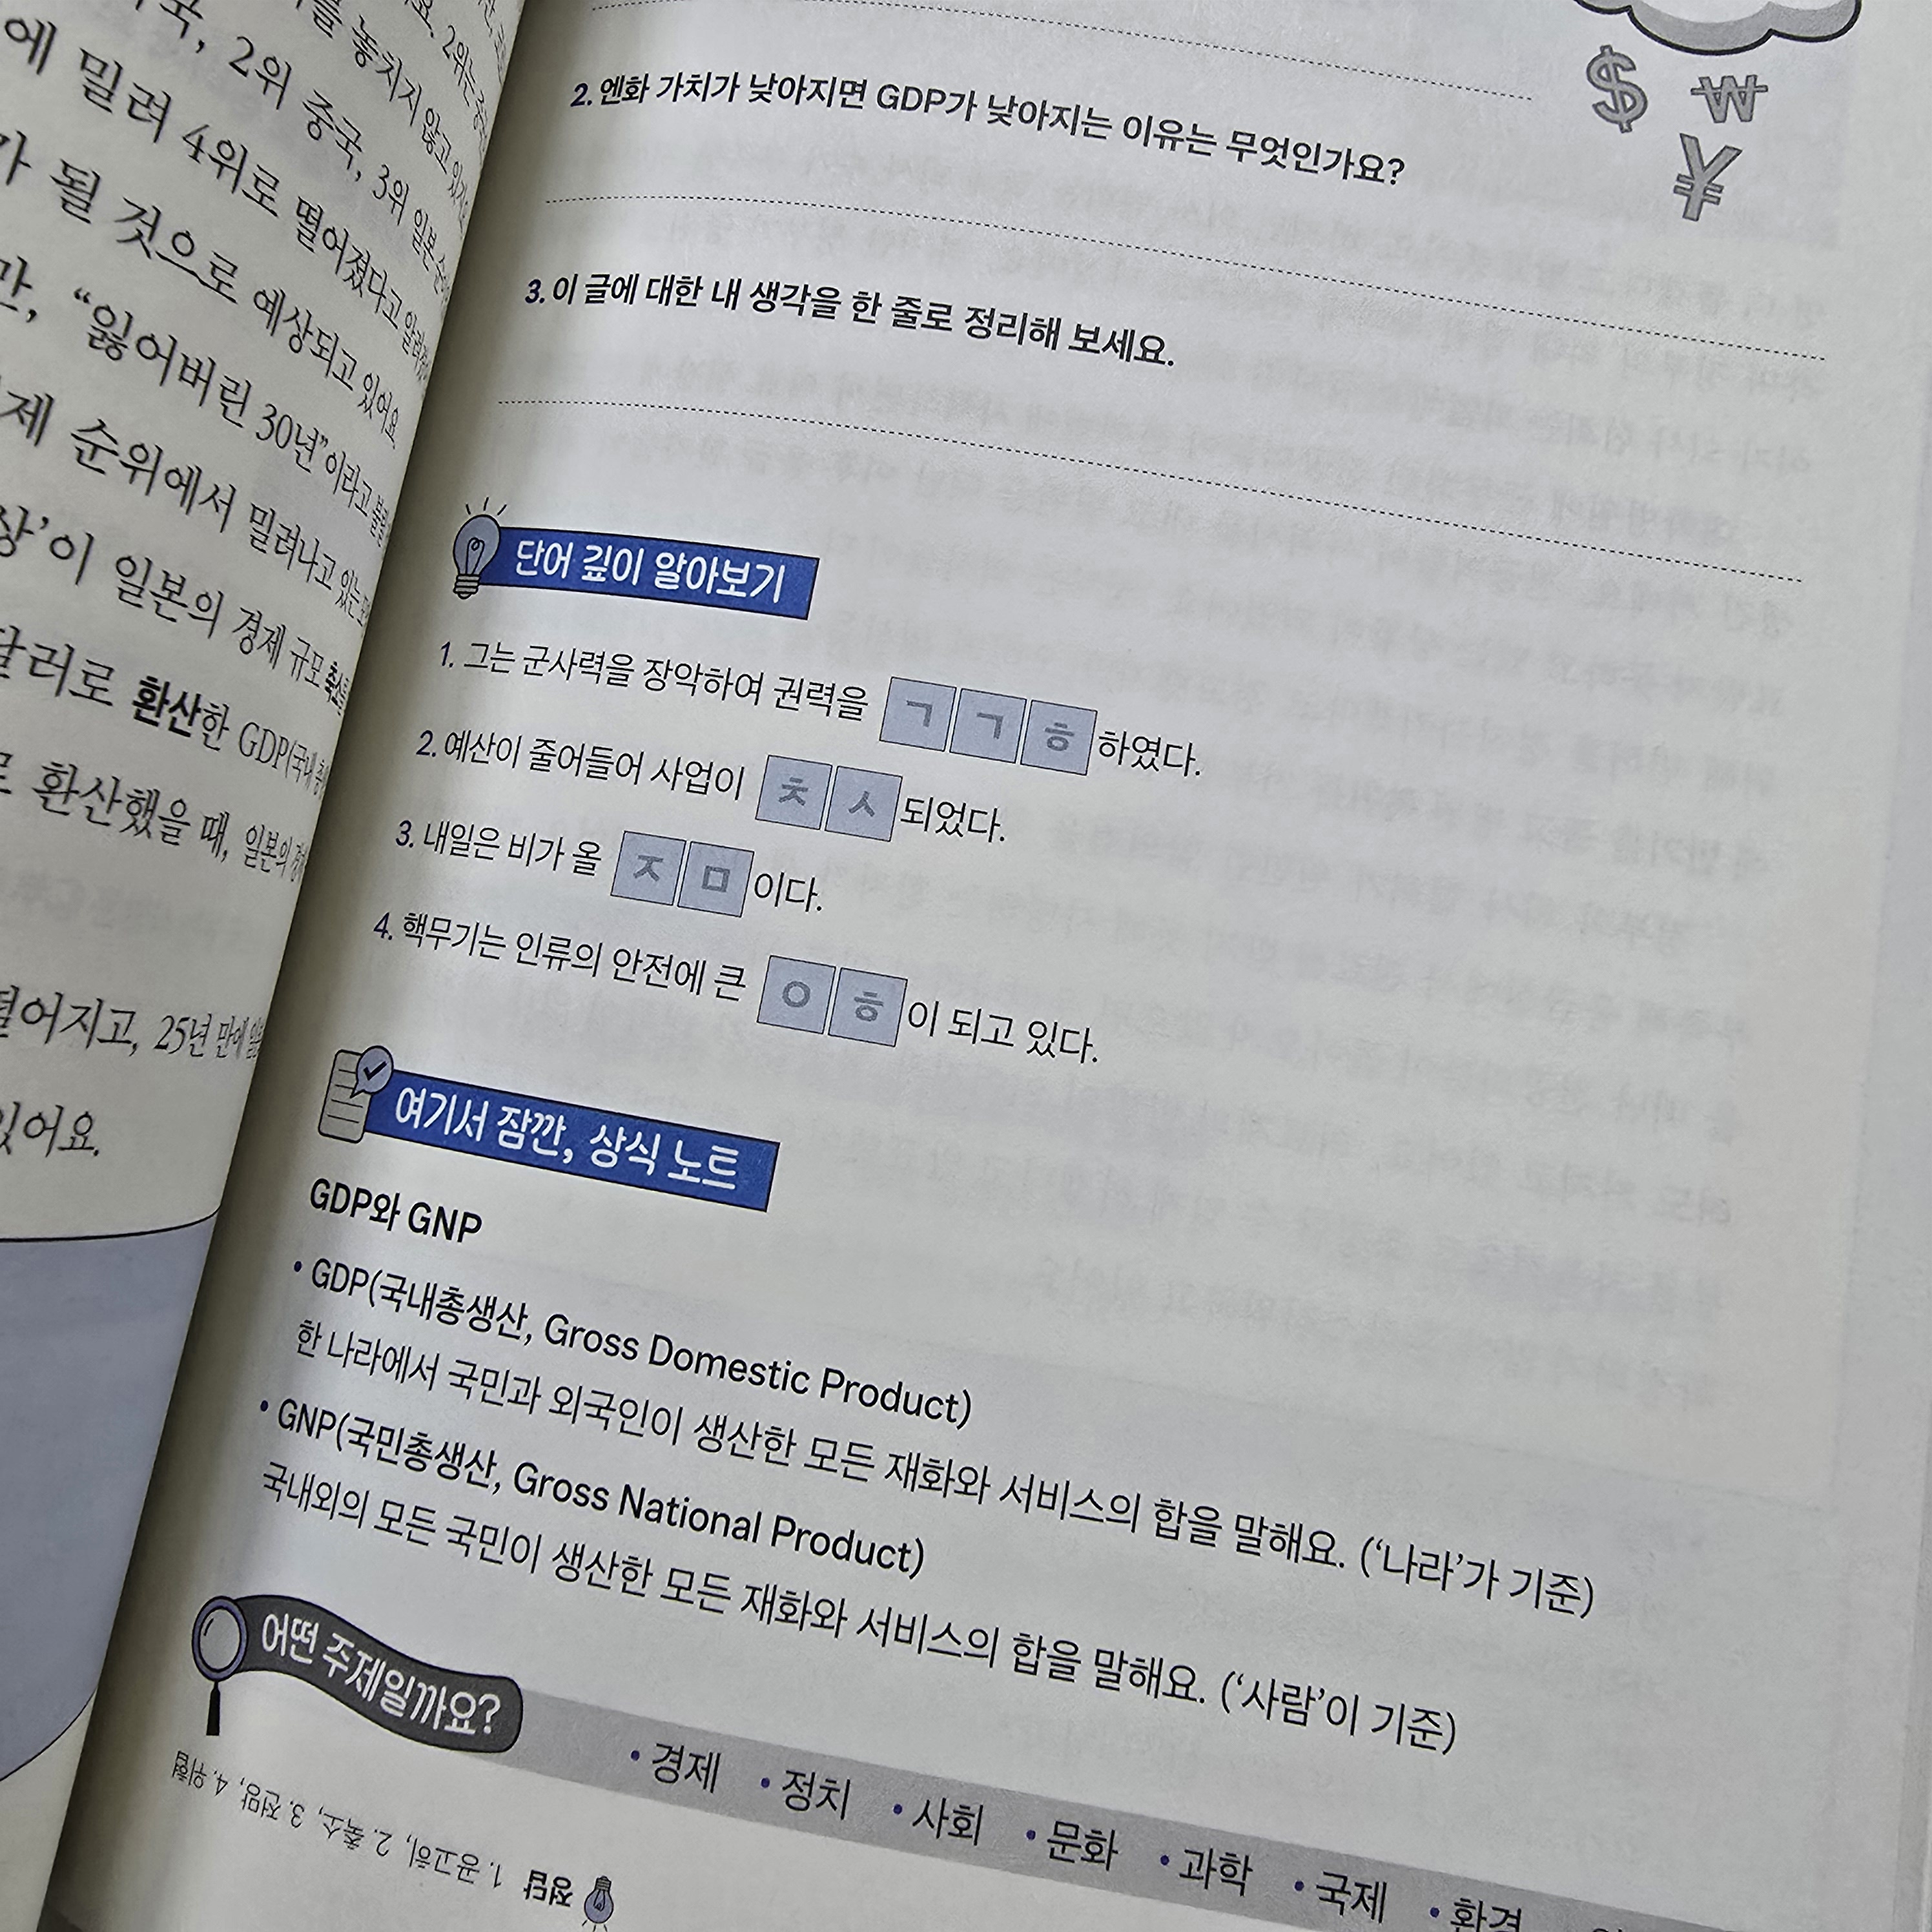 국, 2위 중국, 3위 일본
에 밀려 4위로 떨어졌다고
가 될 것으로 예상되고 있어요.
만, “잃어버린 30년”이라고
제 순위에서 밀려나고 있는
상’이 일본의 경제 규모
달러로 환산한 GDP(국내
로 환산했을 때, 일본의
떨어지고, 25년 만에
있어요.
$ ₩
¥
2. 엔화 가치가 낮아지면 GDP가 낮아지는 이유는 무엇인가요?
3. 이 글에 대한 내 생각을 한 줄로 정리해 보세요.
단어 깊이 알아보기
1. 그는 군사력을 장악하여 권력을 ㄱ ㄱ ㅎ 하였다.
2. 예산이 줄어들어 사업이 ㅊ ㅅ 되었다.
3. 내일은 비가 올 ㅈ ㅁ 이다.
4. 핵무기는 인류의 안전에 큰 ㅇ ㅎ 이 되고 있다.
여기서 잠깐, 상식 노트
GDP와 GNP
• GDP(국내총생산, Gross Domestic Product)
한 나라에서 국민과 외국인이 생산한 모든 재화와 서비스의 합을 말해요. (‘나라’가 기준)
• GNP(국민총생산, Gross National Product)
국내외의 모든 국민이 생산한 모든 재화와 서비스의 합을 말해요. (‘사람’이 기준)
어떤 주제일까요?
• 경제 • 정치 • 사회 • 문화 • 과학 • 국제 • 환경
정답 1. 공고히, 2. 축소, 3. 전망, 4. 위협